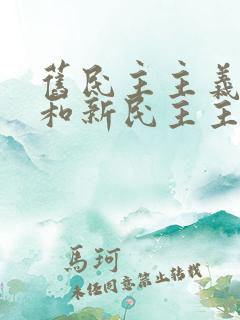 舊民主主義
和新民主主
馬珂
未经同意禁止转载